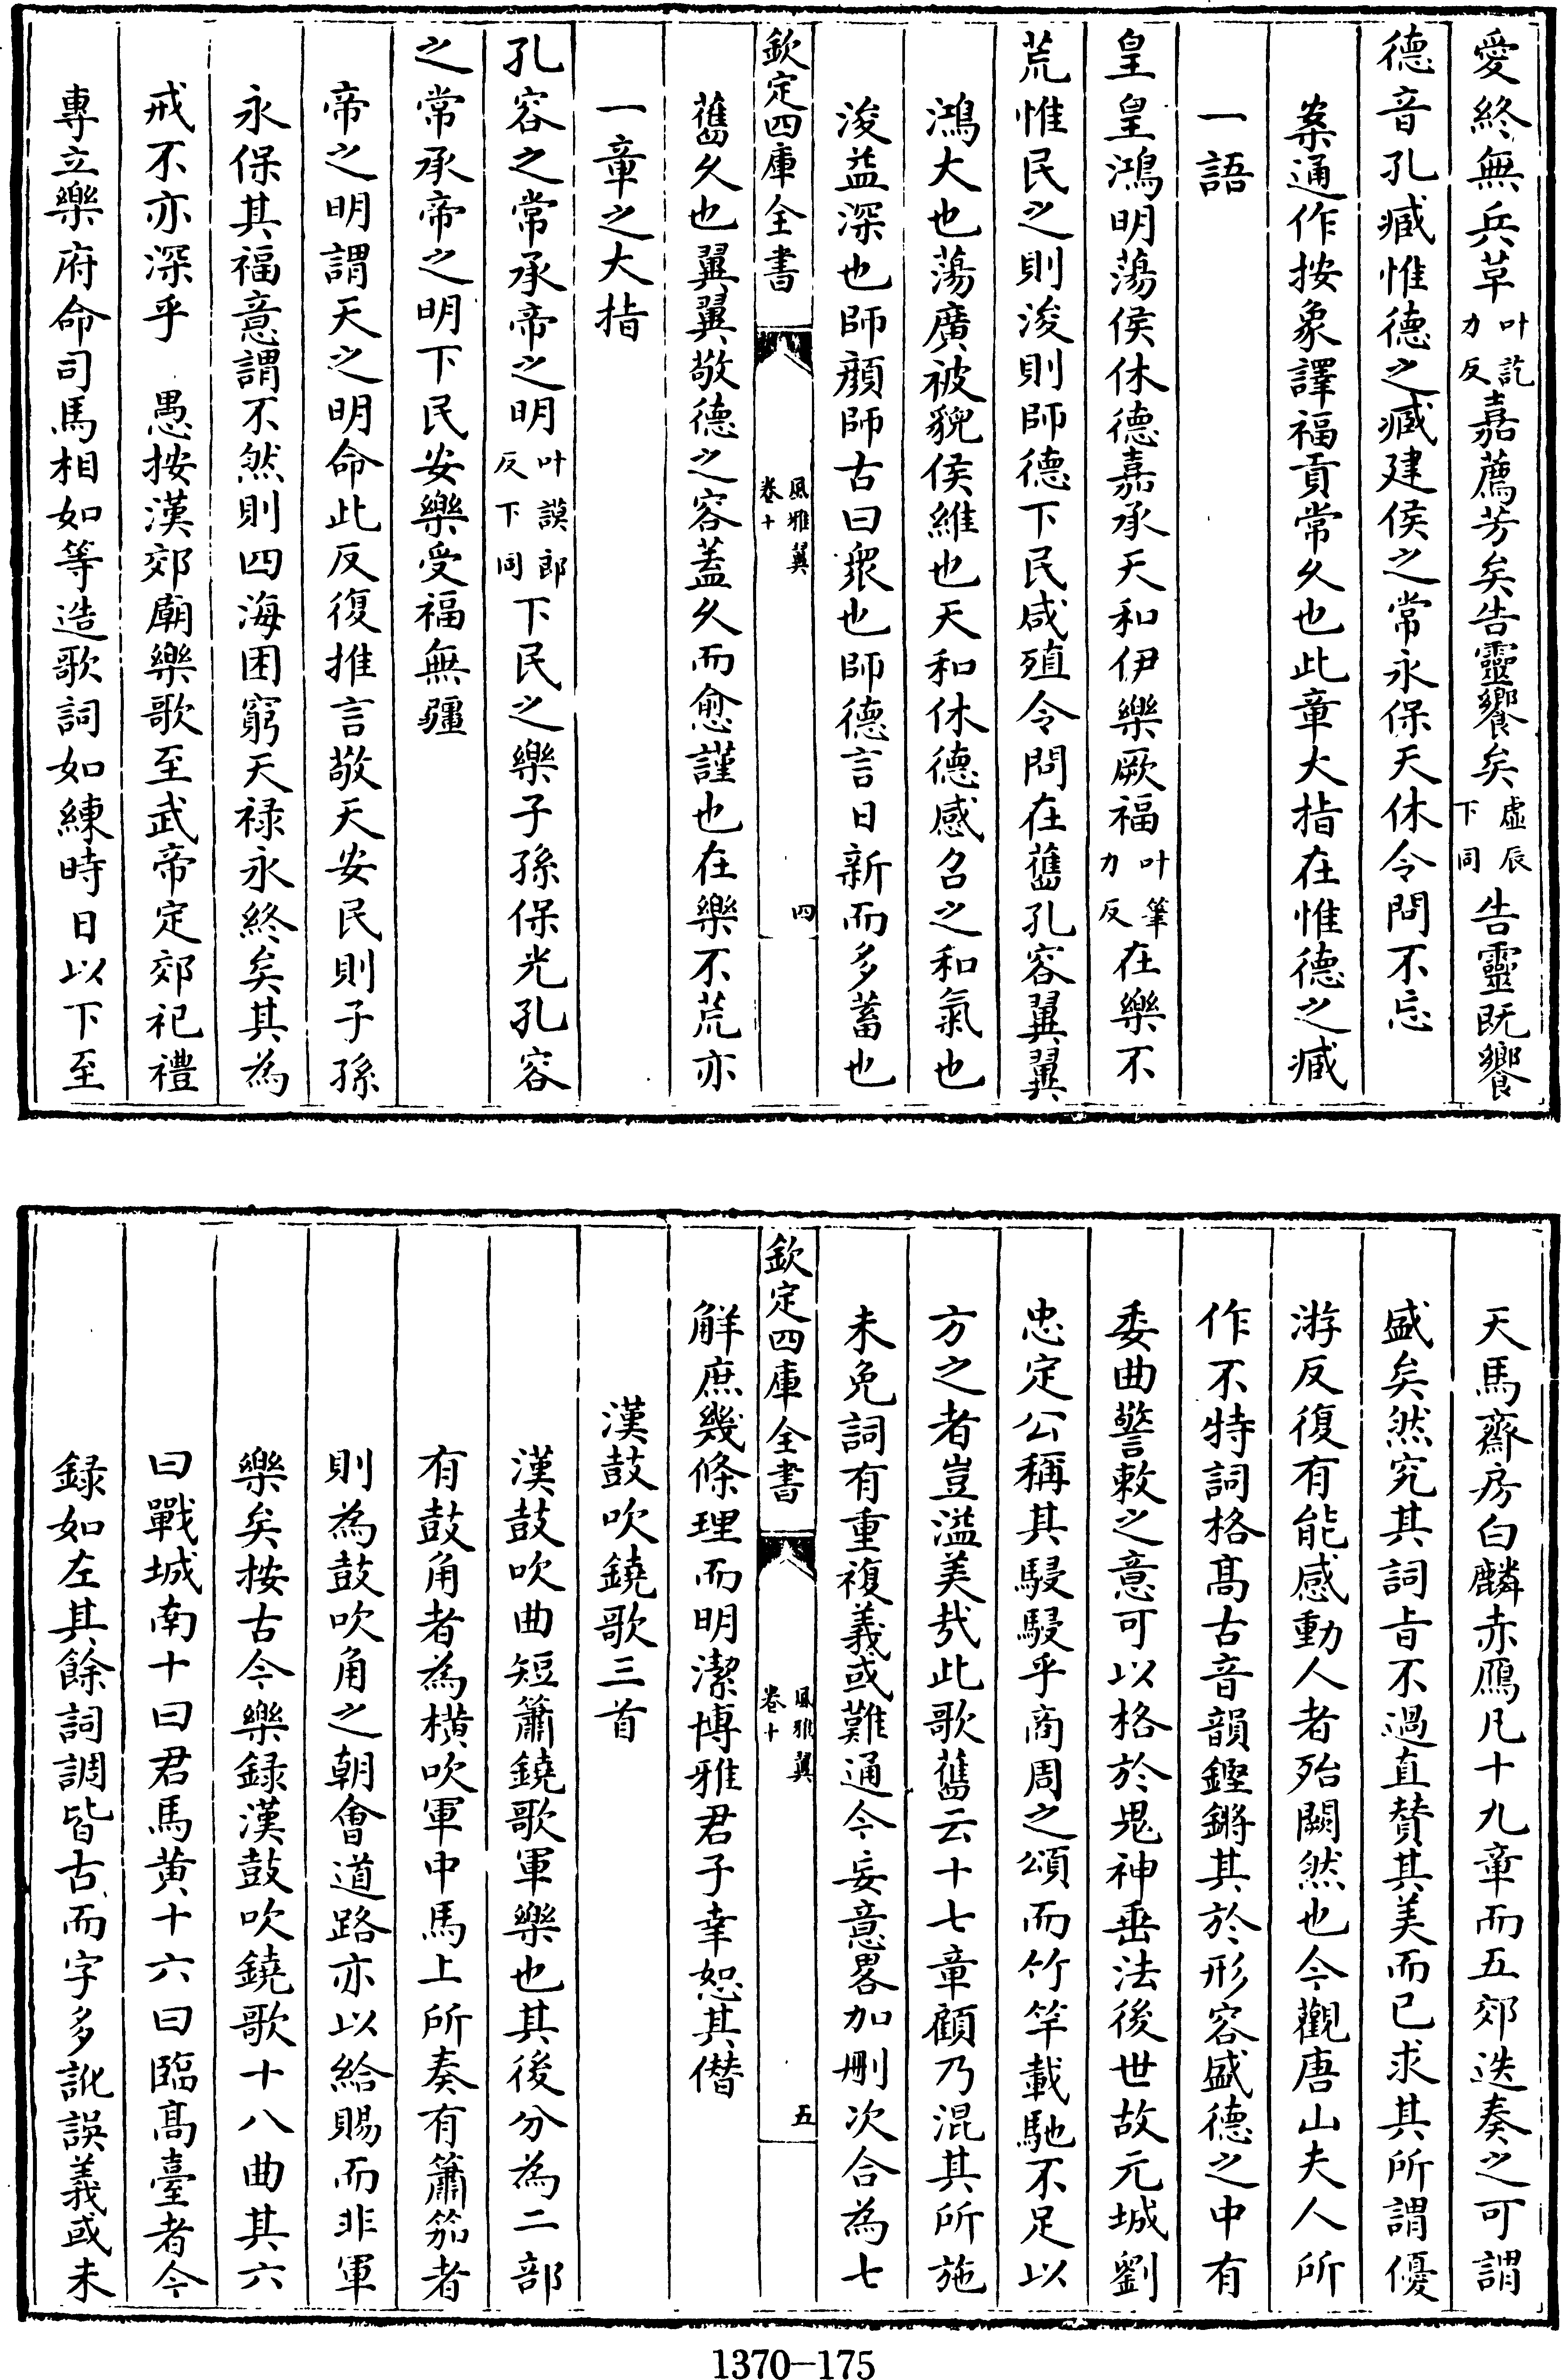 愛終無兵草叶訖力反嘉薦芳矣告靈饗矣虛辰下同告靈既饗
德音孔臧惟德之臧建侯之常永保天休令問不忘
案通作按象譯福貢常乆也此章大指在惟德之臧
一語
皇皇鴻明蕩侯休德嘉承天和伊樂厥福叶筆力反在樂不
荒惟民之則浚則師德下民咸殖令問在舊孔容翼翼
鴻大也蕩廣被貌侯維也天和休德感召之和氣也
浚益深也師顔師古曰衆也師德言日新而多蓄也
欽定四庫全書
風雅翼
卷十
四
舊乆也翼翼敬德之容蓋乆而愈謹也在樂不荒亦
一章之大指
孔容之常承帝之明叶謨郎反下同下民之樂子孫保光孔容
之常承帝之明下民安樂受福無疆
帝之明謂天之明命此反復推言敬天安民則子孫
永保其福意謂不然則四海困窮天禄永終矣其為
戒不亦深乎 愚按漢郊廟樂歌至武帝定郊祀禮
專立樂府命司馬相如等造歌詞如練時日以下至
天馬齋房白麟赤鴈凡十九章而五郊迭奏之可謂
盛矣然究其詞旨不過直賛其美而已求其所謂優
游反復有能感動人者殆闕然也今觀唐山夫人所
作不特詞格髙古音韻鏗鏘其於形容盛德之中有
委曲警敕之意可以格於鬼神垂法後世故元城劉
忠定公稱其駸駸乎商周之頌而竹竿載馳不足以
方之者豈溢美哉此歌舊云十七章顧乃混其所施
未免詞有重複義或難通今妄意畧加刪次合為七
欽定四庫全書
風雅翼
卷十
五
解庶幾條理而明潔博雅君子幸恕其僭
漢鼓吹鐃歌三首
漢鼓吹曲短簫鐃歌軍樂也其後分為二部
有鼓角者為横吹軍中馬上所奏有簫笳者
則為鼓吹角之朝會道路亦以給賜而非軍
樂矣按古今樂録漢鼓吹鐃歌十八曲其六
曰戰城南十曰君馬黄十六曰臨髙臺者今
録如左其餘詞調皆古而字多訛誤義或未
1370—175